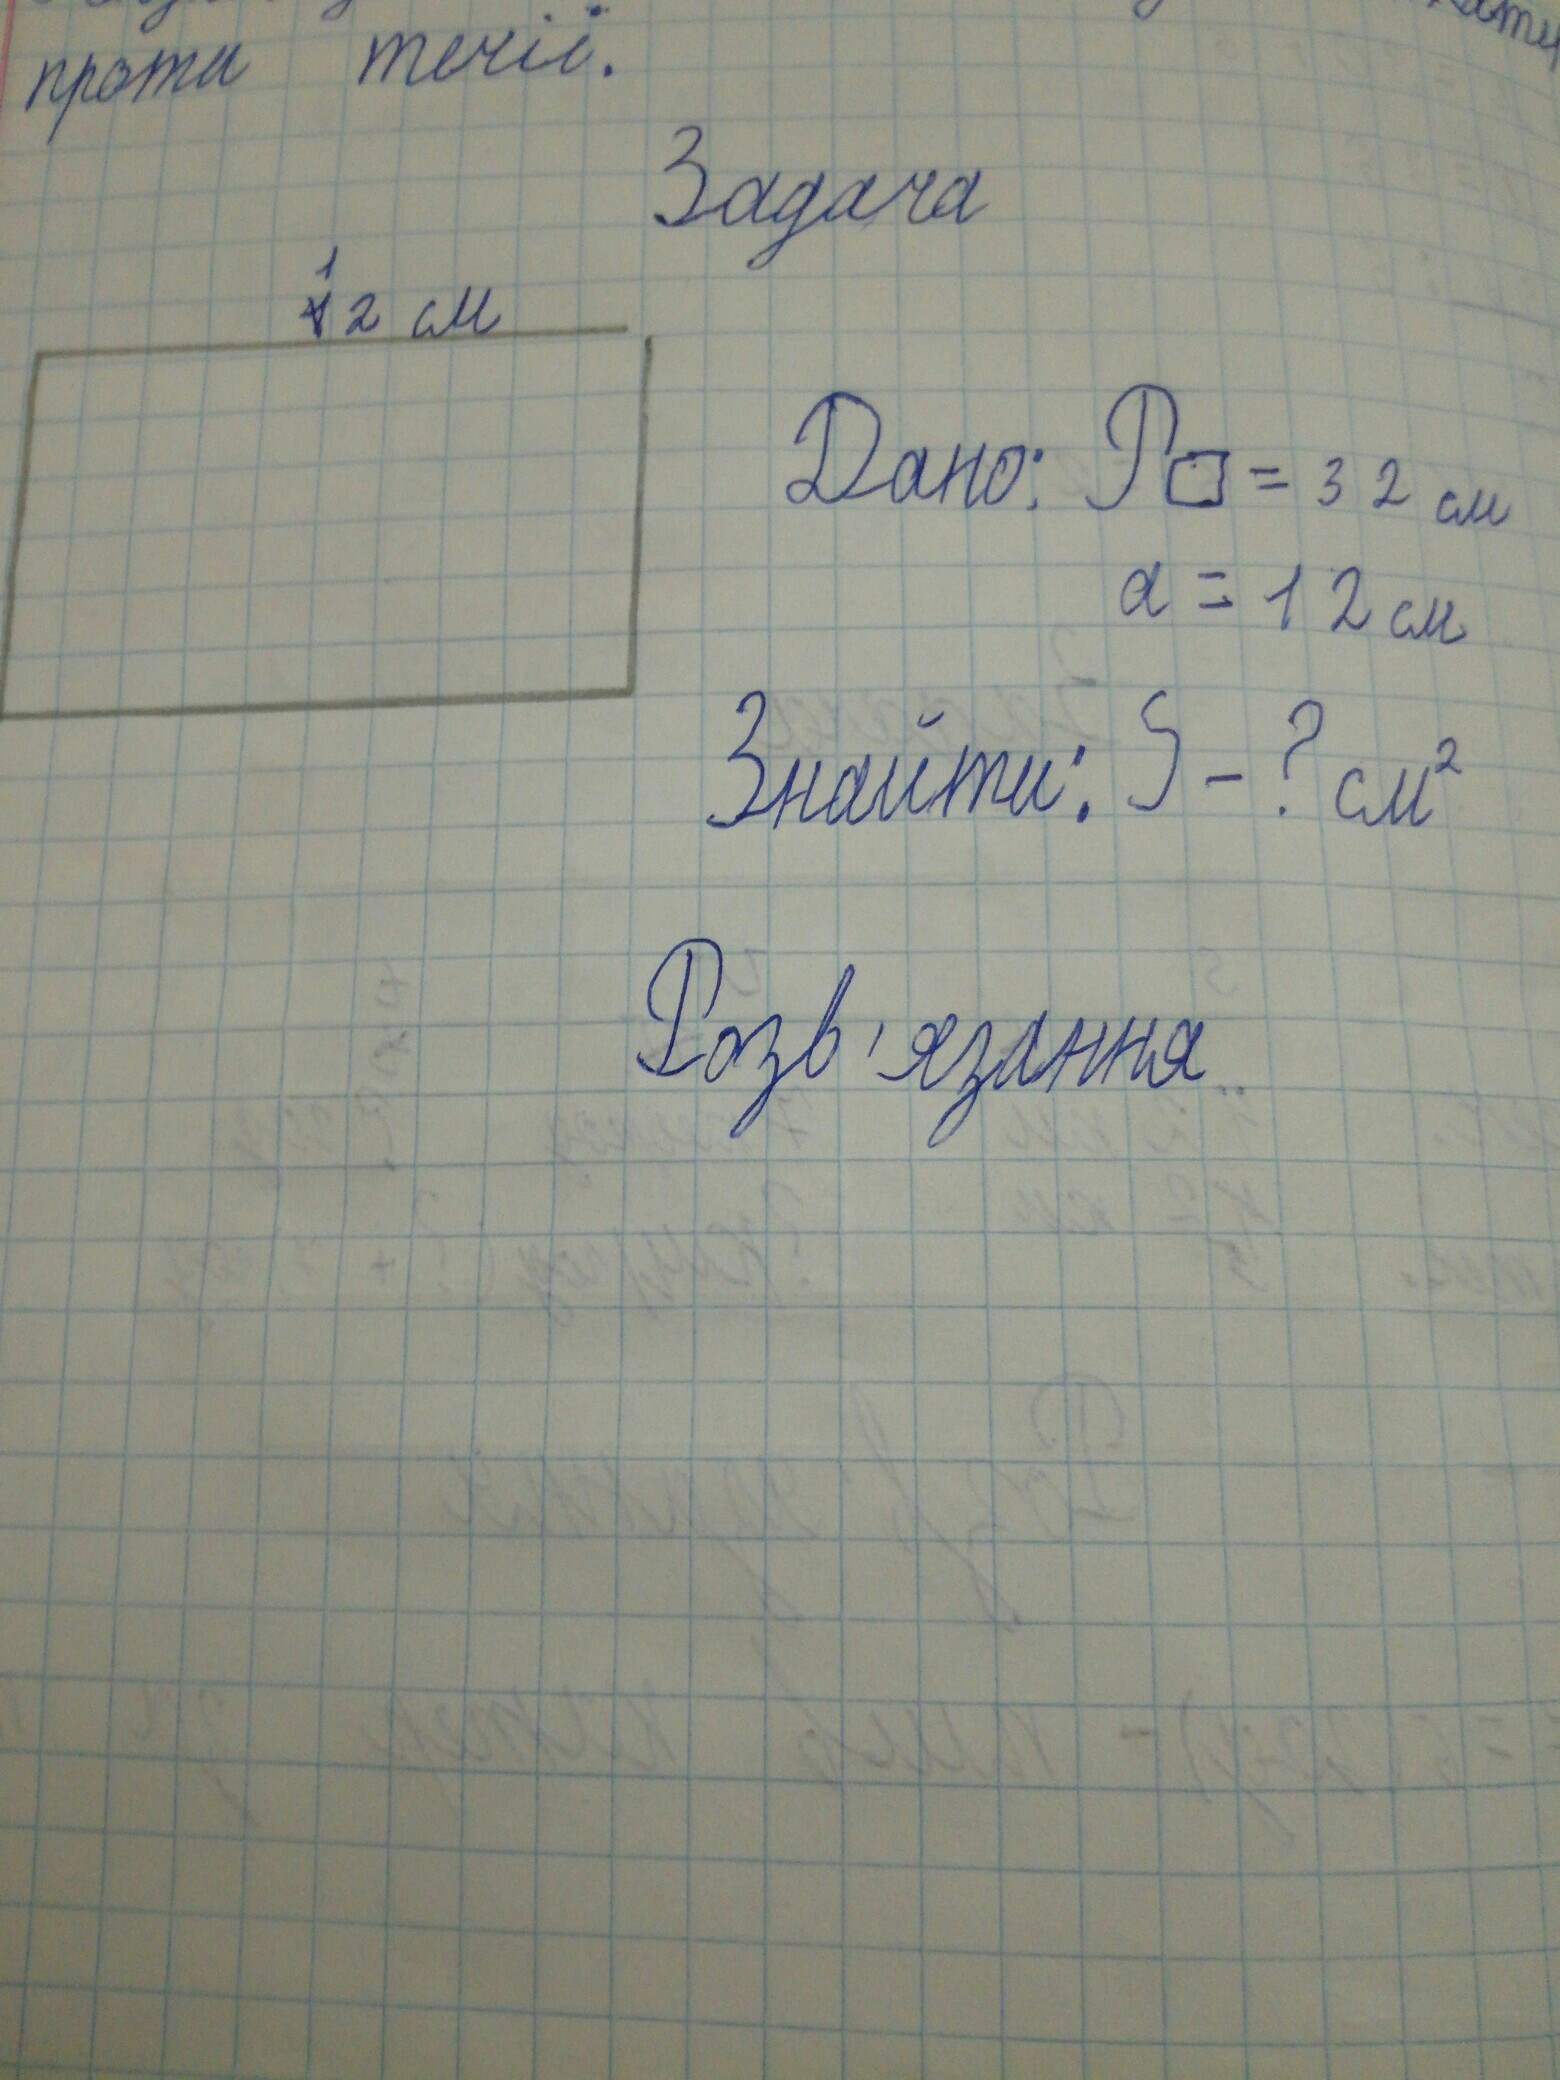 проти течії.
Задача
12 см
Дано: P□ = 32 см
a = 12 см
Знайти: S - ? см²
Розв'язання